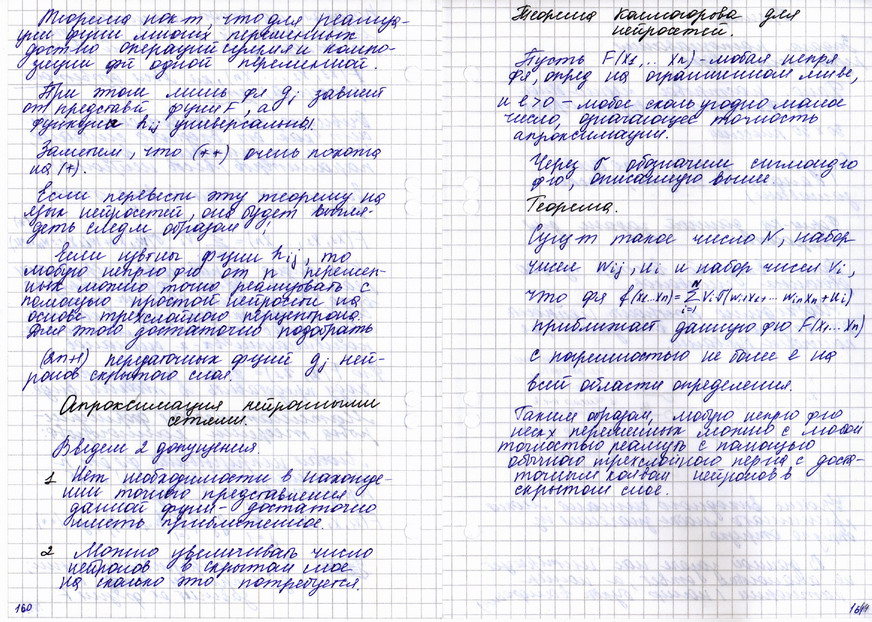 Теорема пок-т, что для реализа-
ции фции многих переменных
достато операций суммы и компо-
зиции фт одной переменной.
При этом лишь фя gj зависит
от представт фции F, а
функции hij универсальны.
Заметем, что (++) очень похожа
на (+).
Если перевести эту теорему на
язык нейросетей, она будет выгля-
деть следм образом:
Если извтны фции hij, то
любую непрю фю от n перемен-
ных можно точно реализовать с
помощью простой нейрости на
основе трехслойного перцептрона.
Для этого достаточно подобрать
(2n+1) передаточных фций gj ней-
ронов скрытого слоя.
Апроксимация нейронными
сетями.
Введем 2 допущения.
1 Нет необходимости в нахожде-
нии точного представления
данной фции - достаточно
иметь приближенное.
2 Можно увеличивать число
нейронов в скрытом слое
на сколько это потребуется.
160
Теорема Колмогорова для
нейросетей.
Пусть F(x1,... xn) - любая непря
фя, опред на ограниченном мнве,
и e>0 - любое сколь угодно малое
число, означающее точность
апроксимации.
Через σ обозначим сигмоидую
фю, описанную выше.
Теорема.
Сущт такое число N, набор
чисел wij, ui и набор чисел vi,
что фя f(x1...xn)=∑ i=1 N Viσ(wi1x1+... winxn+ui)
приближает данную фю F(x1...xn)
с погрешностью не более e на
всей области определения.
Таким образом, любую непрю фю
нескх переменных можно с любой
точностью реализть с помощью
обычного трехслойного перна с доста-
точным колвом нейронов в
скрытом слое.